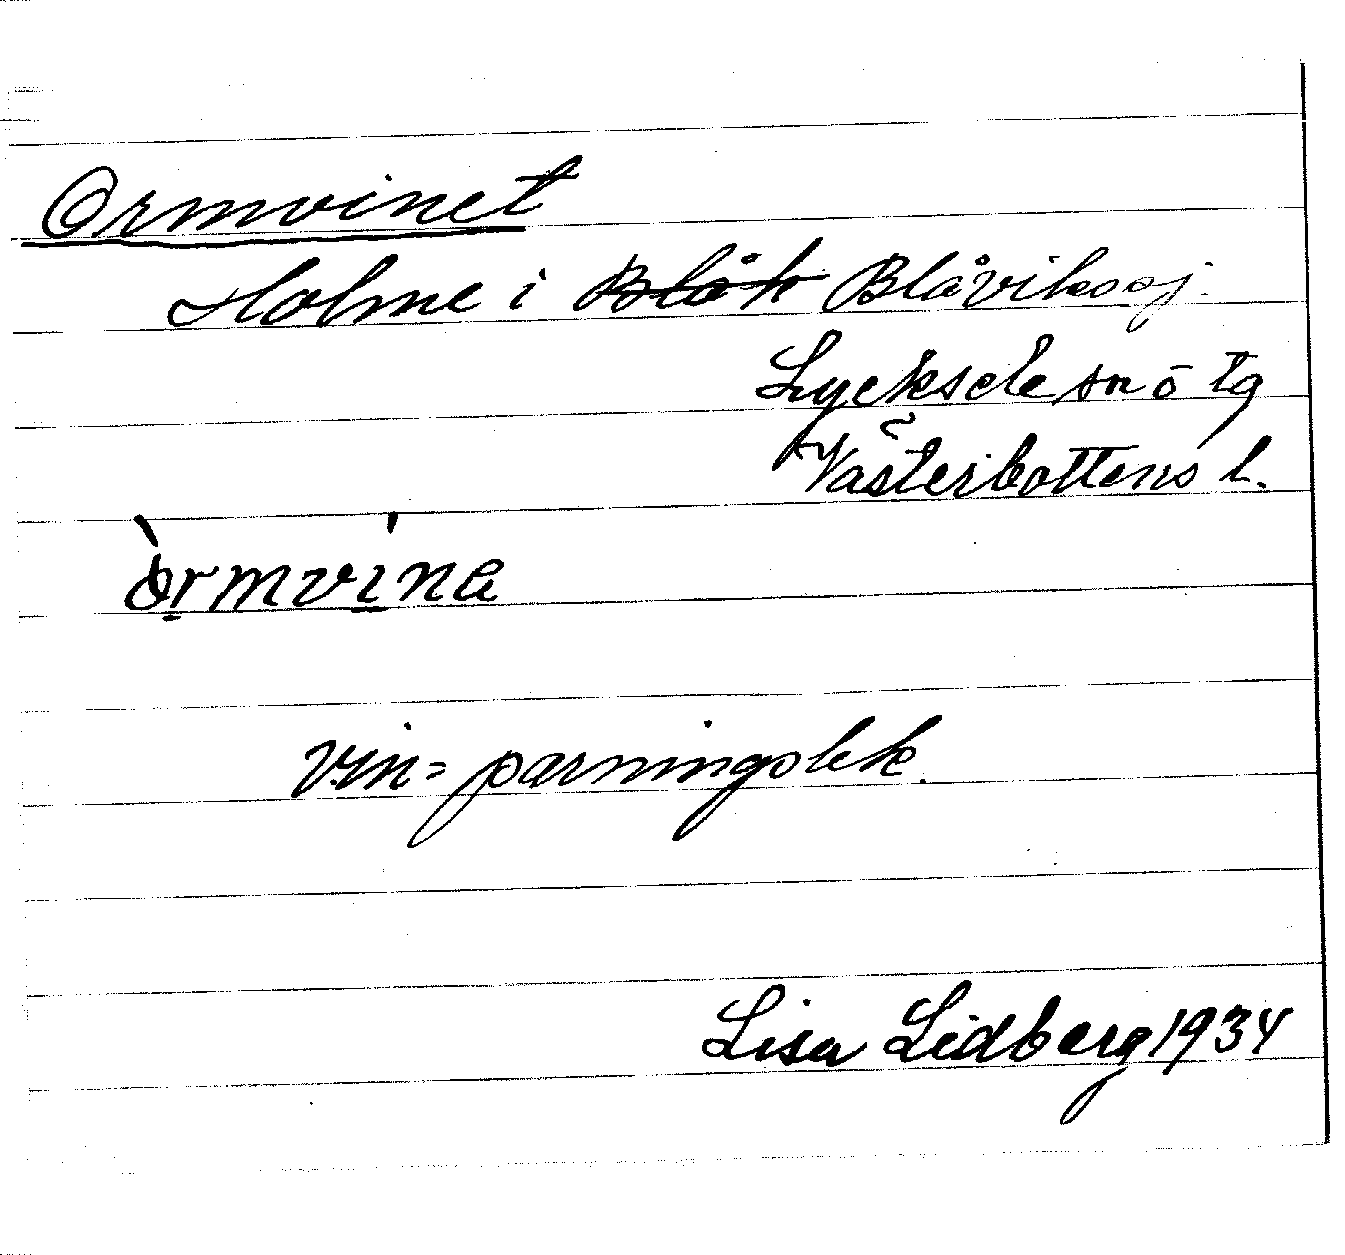 Ormvinet
Holme i Blåk Blåvikssj.
Lycksele sn o tg
Västerbottens l.
òrmvína
vin = parningslek.
Lisa Lidberg 1934